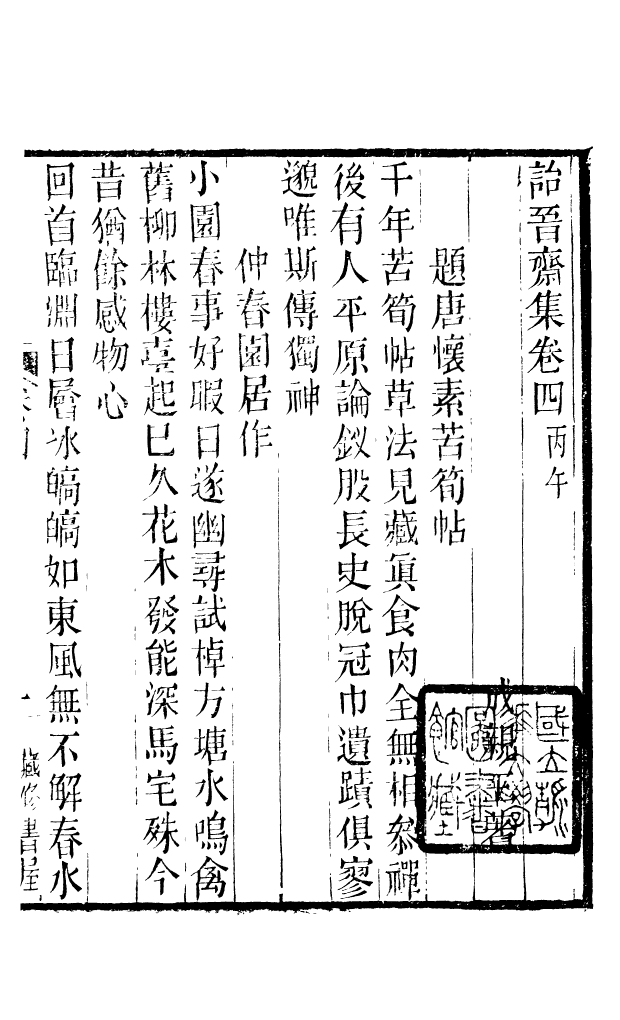 詒晉齋集卷四 丙午
成親王著
題唐懷素苦筍帖
千年苦筍帖草法見藏眞食肉全無相叅禪
後有人平原論釵股長史脫冠巾遺蹟俱寥
邈唯斯傳獨神
仲春園居作
小園春事好暇日遂幽尋試棹方塘水鳴禽
舊柳林樓臺起已久花木發能深馬宅殊今
昔猶餘感物心
回首臨淵日層冰皜皜如東風無不解春水
藏修書屋